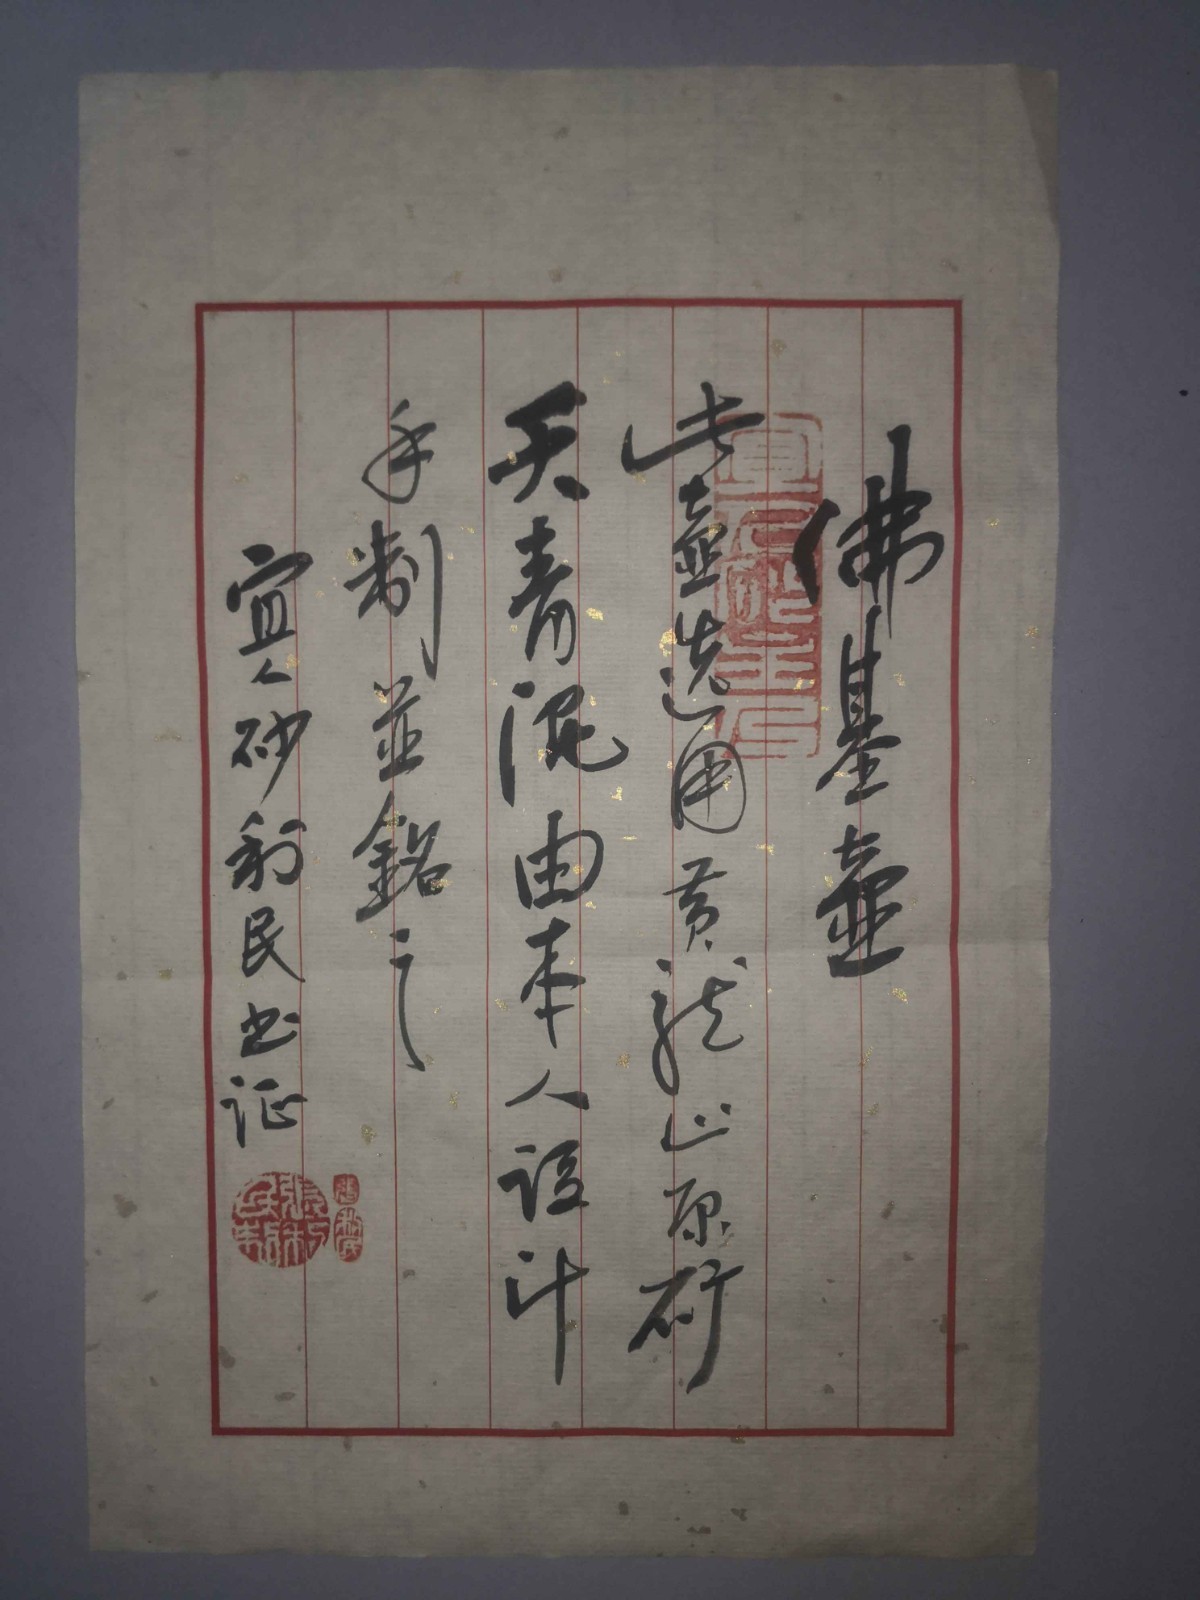 佛基壶
此壶选用黄龙山原矿
天青泥由本人设计
手制並銘之
宜人砂利民书证